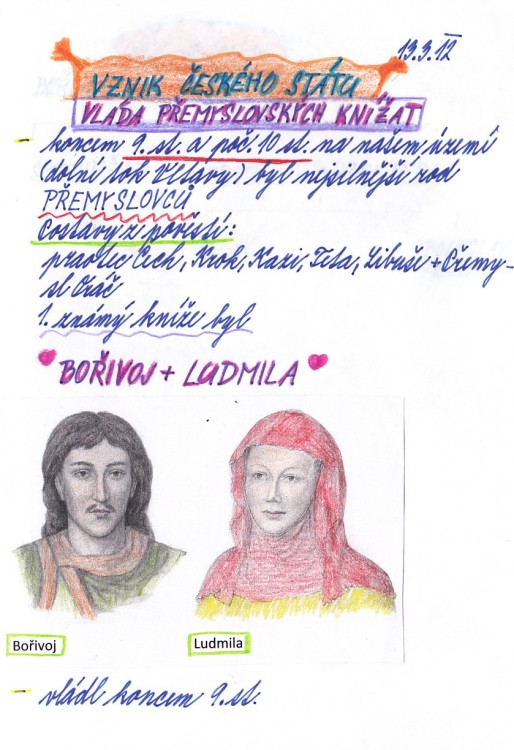 13.3.12
VZNIK ČESKÉHO STÁTU
VLÁDA PŘEMYSLOVSKÝCH KNÍŽAT
- koncem 9. st. a poč. 10 st. na našem území
(dolní tok Vltavy) byl nejsilnější rod
PŘEMYSLOVCŮ
Postavy z pověstí:
praotec Čech, Krok, Kazi, Teta, Libuše + Přemy-
sl Oráč
1. známý kníže byl
BOŘIVOJ + LUDMILA
Bořivoj
Ludmila
- vládl koncem 9. st.